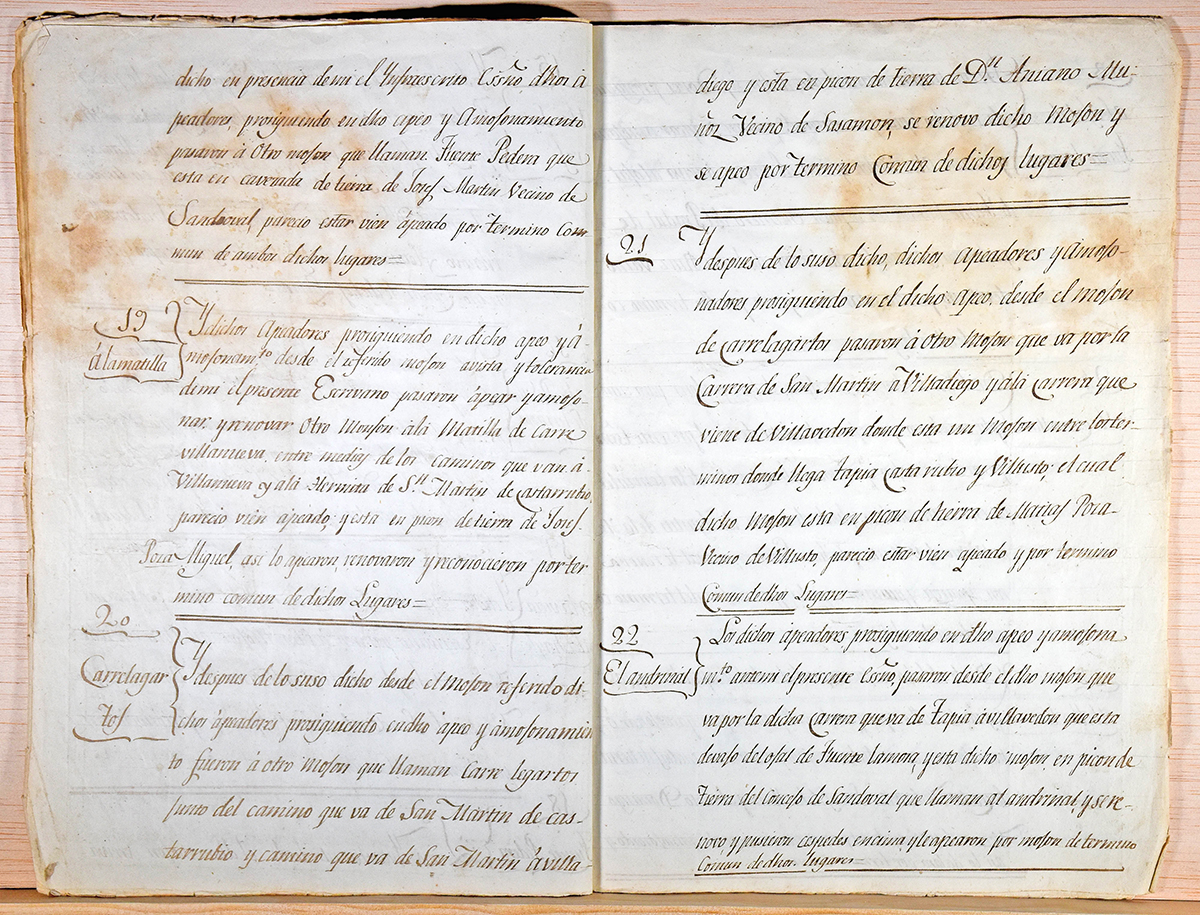 dicho en presencia de mi el Ynfraescrito Essño, dhos à
peadores, prosiguiendo en dho apeo y Amojonamiento
pasaron à Otro mojon que llaman Fuente Pedera que
esta en caverada de tierra de Josef Martin Vecino de
Sandoval, parecio estar vien àpeado por termino Com
mun de ambos dichos lugares=
19
àlamatilla
Y dichos Apeadores prosiguiendo en dicho apeo y à
mojonam.to desde el referido mojon avista, y tolerancia
de mi el presente Escrivano pasaron àpear y amojo
nar, y renovar Otro Monjon àlà Matilla de Carre
villanueva, entre medios de los caminos que van à
Villanueva y alà Hermita de S.n Martin de Castarrubio,
parecio vien apeado, y esta en picon de tierra de Josef.
Poza Miguel, asi lo apearon, renovaron y reconocieron por ter
mino comun de dichos Lugares=
20
Carrelagar
tos
Y
despues de lo suso dicho desde el Mojon referido di
chos àpeadores prosiguiendo en dho àpeo y àmojonamien
to fueron à otro mojon que llaman Carre legartos
junto del camino que va de San Martin de cas-
tarrubio y camino que va de San Martin à villa-
diego y esta en picon de tierra de D.n Aniano Mu-
ñoz Vecino de Sasamon, se renovo dicho Mojon y
se apeo por termino Comun de dichos lugares=
21
Y
despues de lo suso dicho, dichos Apeadores y Amojo-
nadores prosiguiendo en el dicho Apeo, desde el mojon
de Carrelagartos pasaron à otro Mojon que va por la
Carrera de San Martin à Villadiego y àlà Carrera que
viene de Villavedon donde esta un Mojon entre los ter-
minos donde llega tapia Castarrubio y Villusto, el cual
dicho Mojon esta en picon de tierra de Matias Poza
Vecino de Villusto, parecio estar vien apeado y por termino
Comun de dhos Lugares=
22
El andrinal
Los dichos àpeadores prosiguiendo en dho apeo y amojona
m.to antemi el presente Essño, pasaron desde el dho mojon que
va por la dicha Carrera que va de tapia à villavedon que esta
devajo del ojal de Fuente lamora, y esta dicho mojon, en picon de
tierra del Concejo de Sandoval que llaman al andrinal, y se re-
novo y pusieron cespedes encima, y le apearon por mojon de termino
Comun de dhos Lugares=